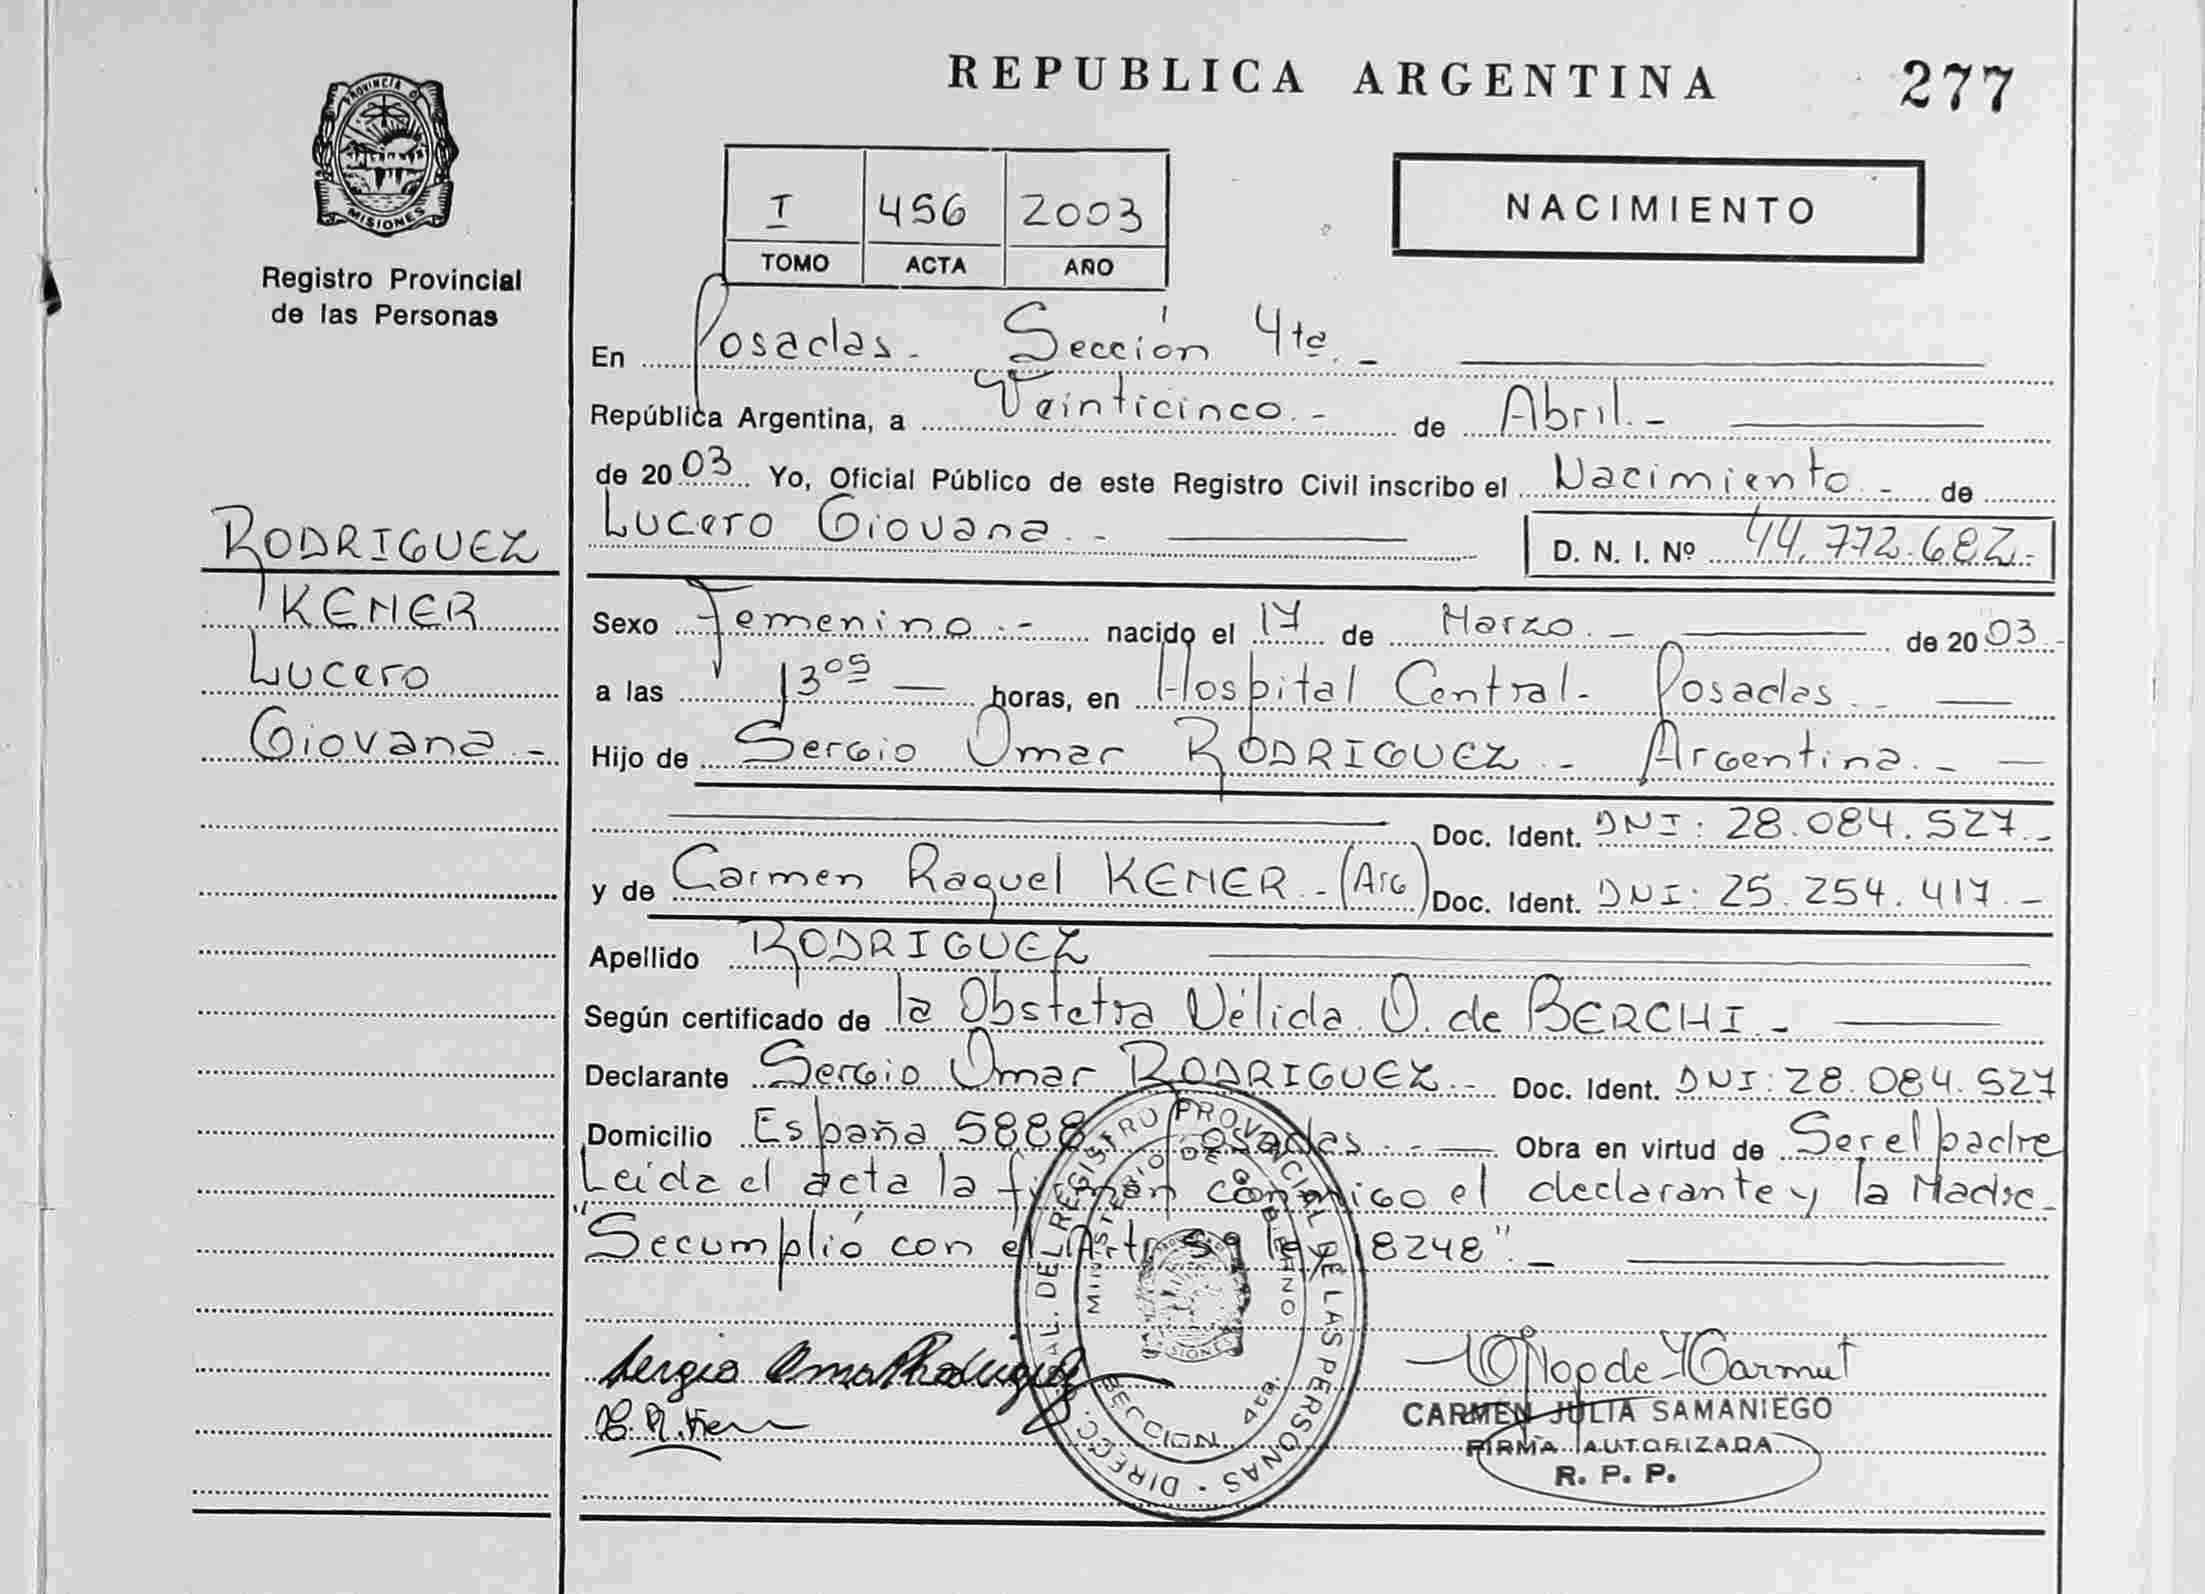 REPUBLICA ARGENTINA
277
PROVINCIA D
MISIONES
Registro Provincial
de las Personas
I 456 2003
TOMO ACTA AÑO
NACIMIENTO
En Posadas.- Sección 4ta.-
República Argentina, a Veinticinco.- de Abril.-
de 2003 Yo, Oficial Público de este Registro Civil inscribo el Nacimiento.- de
Lucero Giovana.- D. N. I. Nº 44.772.682.-
RODRIGUEZ
KENER
Lucero
Giovana.-
Sexo Femenino.- nacido el 17 de Marzo.- de 2003.-
a las 13 05 horas, en Hospital Central.- Posadas.-
Hijo de Sergio Omar RODRIGUEZ.- Argentina.-
Doc. Ident. DNI: 28.084.527.-
y de Carmen Raquel KENER.- (Arg) Doc. Ident. DNI: 25.254.417.-
Apellido RODRIGUEZ
Según certificado de la Obstetra Nélida O. de BERCHI.-
Declarante Sergio Omar RODRIGUEZ.- Doc. Ident. DNI: 28.084.527
Domicilio España 5888 Posadas.- Obra en virtud de Ser el padre
Leida el acta la firman conmigo el declarante y la Madre.-
"Se cumplió con el Art. ley 18248".-
DIRECC. GRAL. DEL REGISTRO PROVINCIAL DE LAS PERSONAS
MINISTERIO DE GOBIERNO
SECCION 4ta.
MISIONES
Sergio Omar Rodriguez
CARMEN JULIA SAMANIEGO
FIRMA AUTORIZADA
R. P. P.